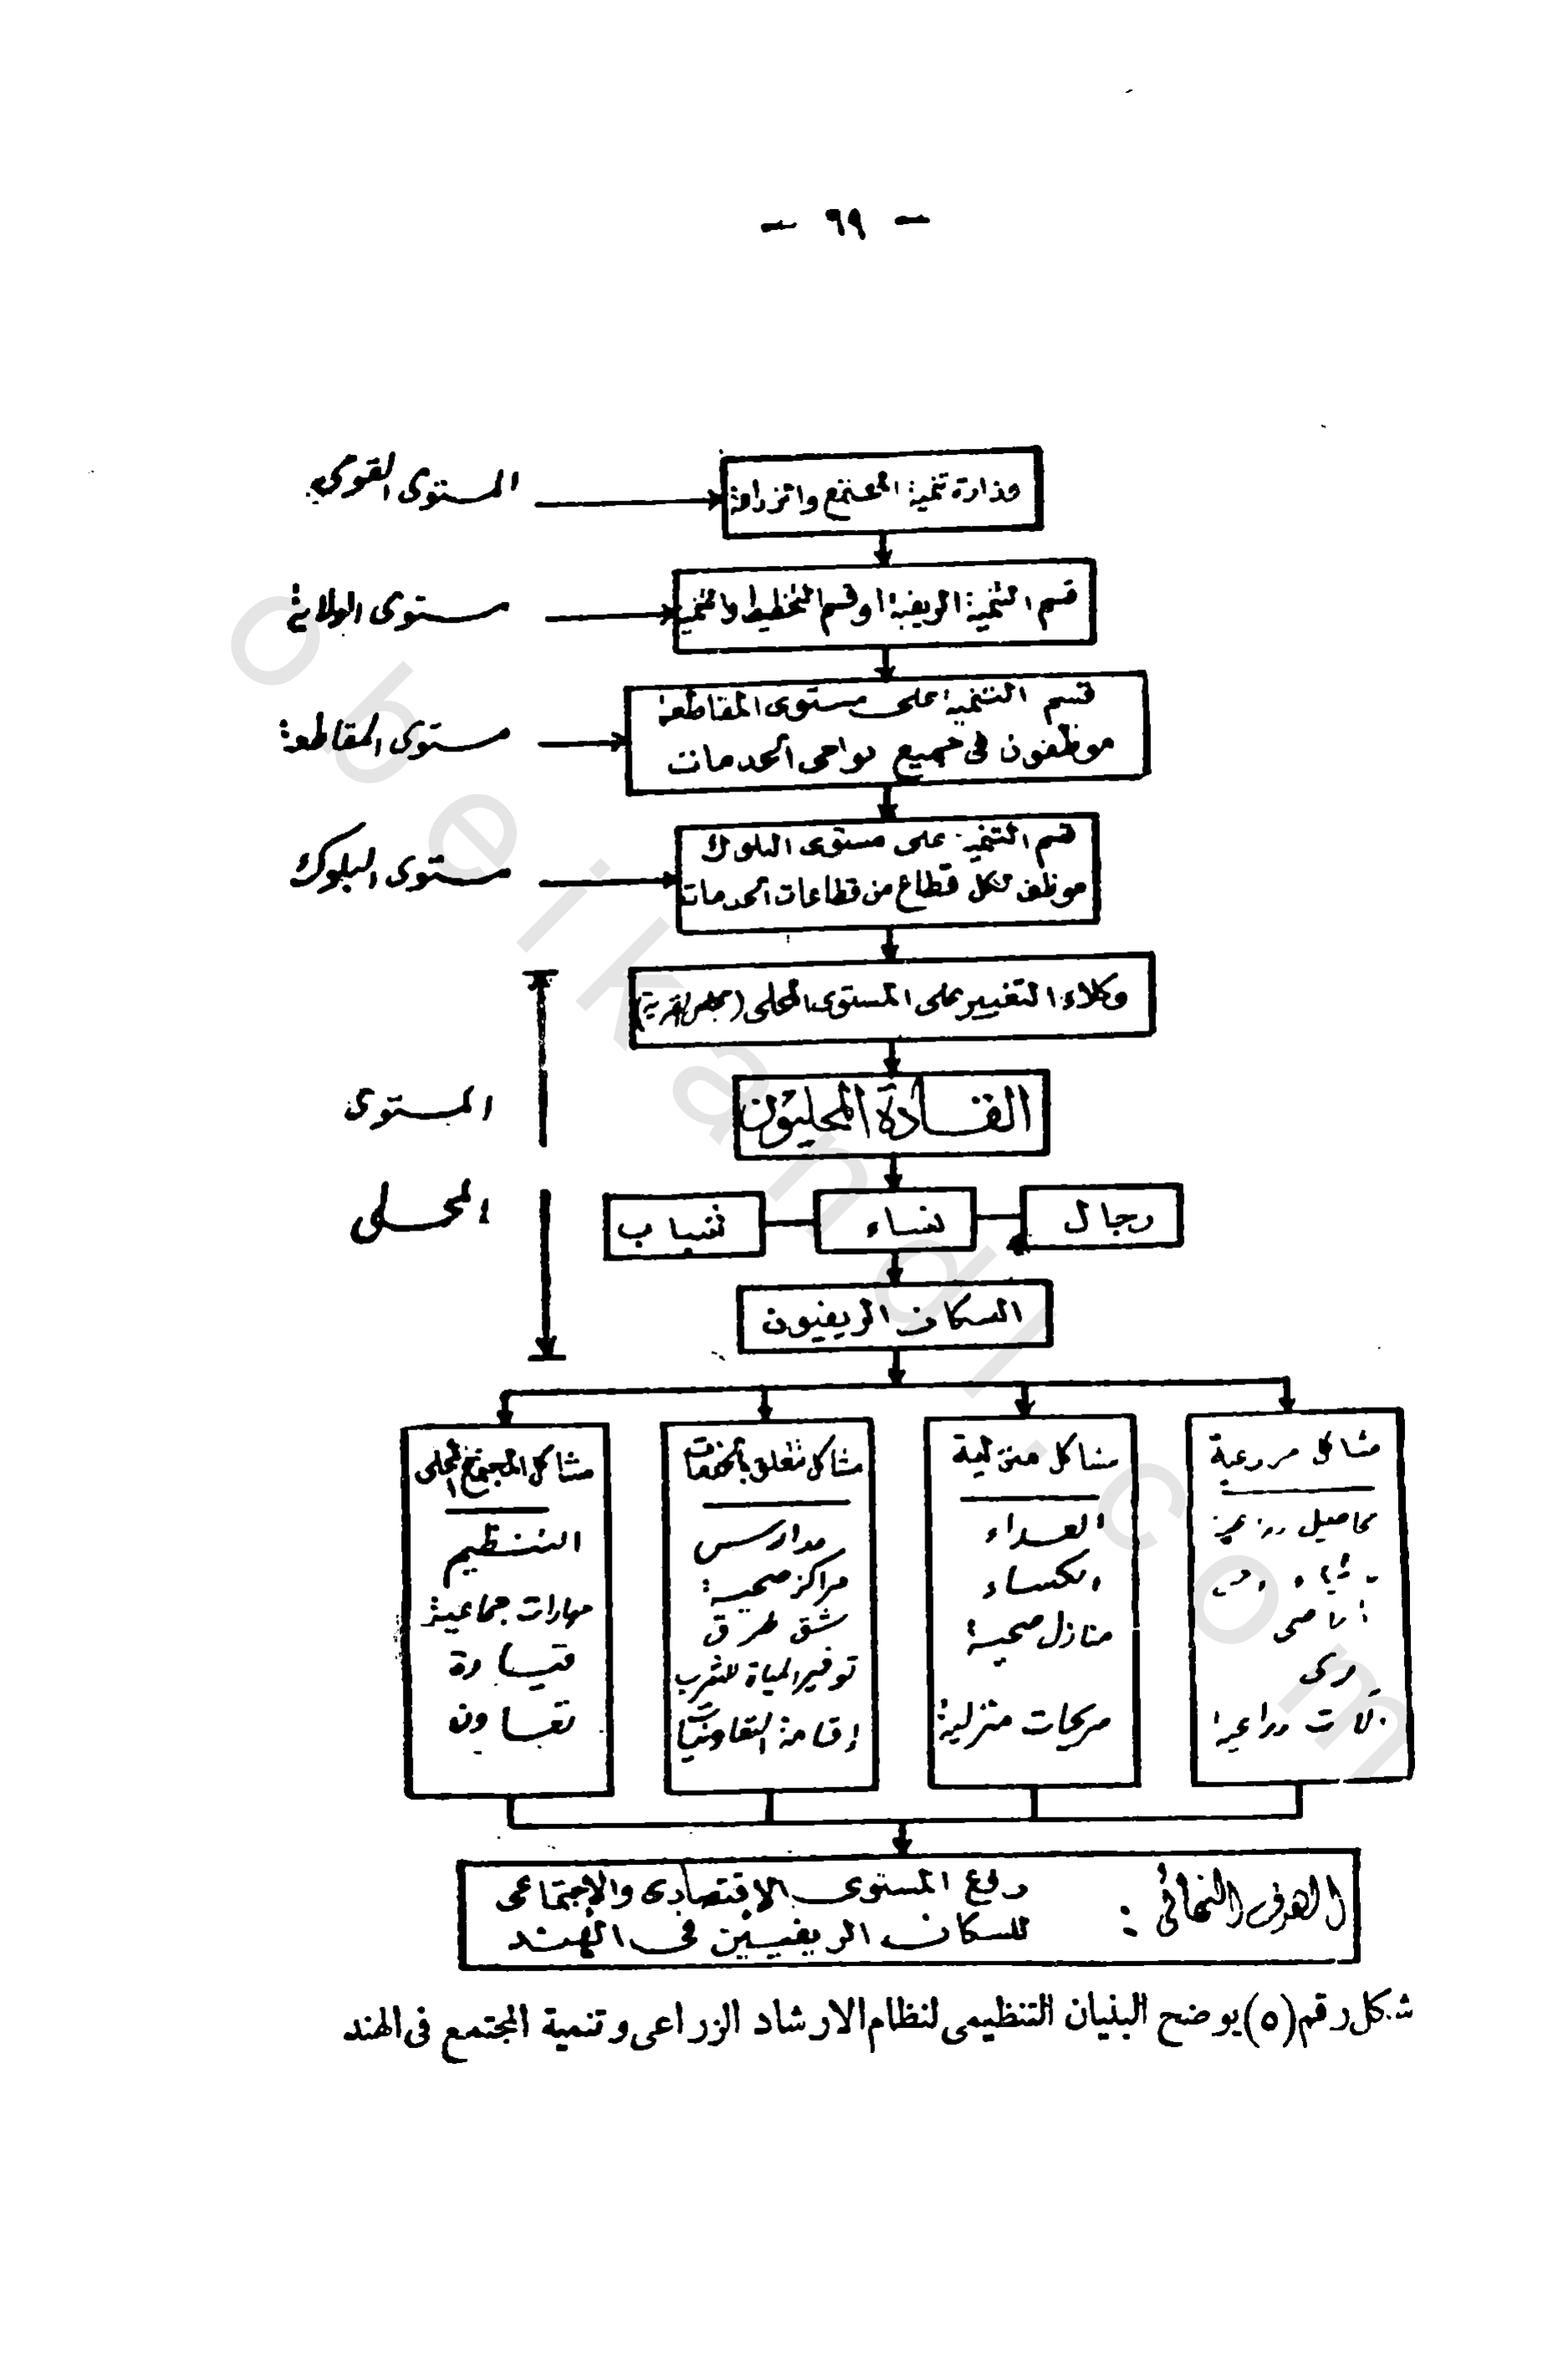 - ٦٩ -
المستوى القومى
وزارة تنمية المجتمع والزراعة
مستوى الولاية
قسم التنمية الريفية او قسم التخطيط والتنمية
مستوى المقاطعة
قسم التنمية على مستوى المقاطعة
موظفون فى جميع نواحى الخدمات
مستوى البلوك
قسم التنمية على مستوى البلوك
موظف لكل قطاع من قطاعات الخدمات
وكلاء التغيير على المستوى المحلى (مجلس القرية)
المستوى
المحلى
القادة المحليون
رجال
نساء
شباب
السكان الريفيون
مشاكل مزرعية
محاصيل
أراضى
رى
آلات زراعية
مشاكل منزلية
الغذاء
الكساء
منازل صحية
مربحات منزلية
مشاكل تتعلق بالخدمات
مدارس
مراكز صحية
شق طرق
توفير المياة للشرب
إقامة التعاونيات
مشاكل المجتمع المحلى
التنظيم
مهارات جماعية
قيادة
تعاون
الهدف النهائى :
رفع المستوى الاقتصادى والاجتماعى
للسكان الريفيين فى الهند
شكل رقم (٥) يوضح البنيان التنظيمى لنظام الارشاد الزراعى وتنمية المجتمع فى الهند
obeikandl.com